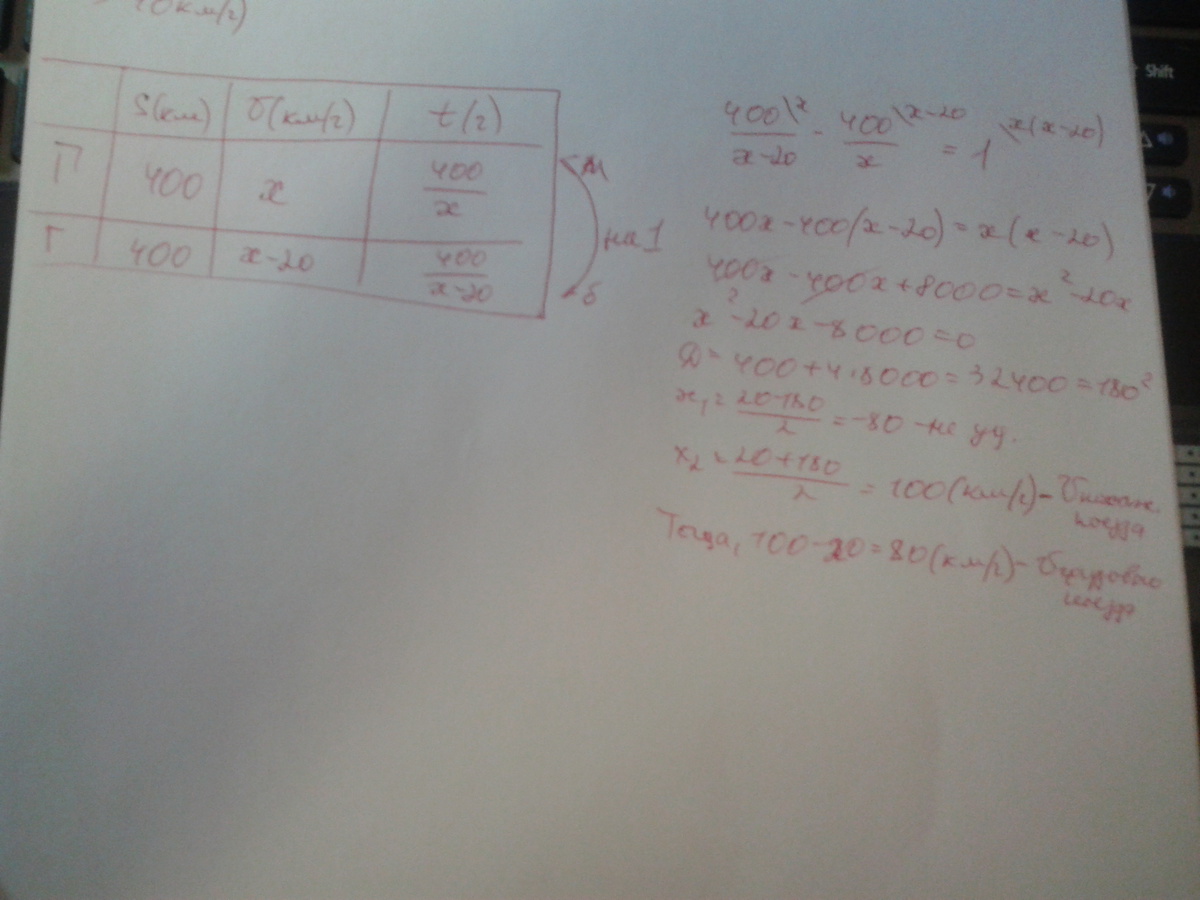 10 км/ч)
S(км) υ(км/ч) t(ч)
П 400 x 400/x
Г 400 x-20 400/(x-20)
м
на 1
б
400\x/(x-20) - 400\x-20/x = 1\x(x-20)
400x-400(x-20)=x(x-20)
400x-400x+8000=x²-20x
x²-20x-8000=0
D=400+4·8000=32400=180²
x₁=(20-180)/2=-80 -не уд.
x₂=(20+180)/2=100(км/ч)-
поезда
Тогда, 100-20=80(км/ч)-
Shift